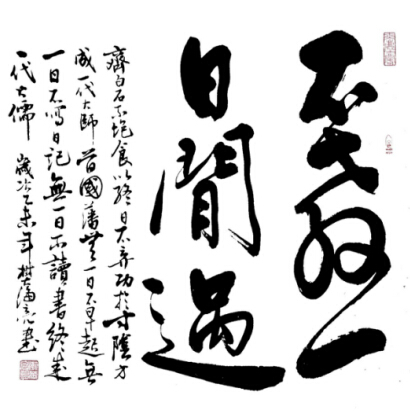 不教一
日閒過
齊白石不飽食以終日不弃功於寸陰方
成一代大師曾國藩無一日不早起無
一日不寫日記無一日不讀書終成
一代大儒 歲次乙未年